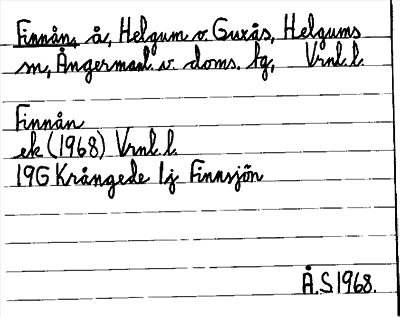 Finnån, å, Helgum o. Guxås, Helgums
sn, Ångermanl. v. doms. tg, Vrnl. l.
Finnån
ek (1968) Vrnl. l.
19G Krångede 1j Finnsjön
Å.S 1968.